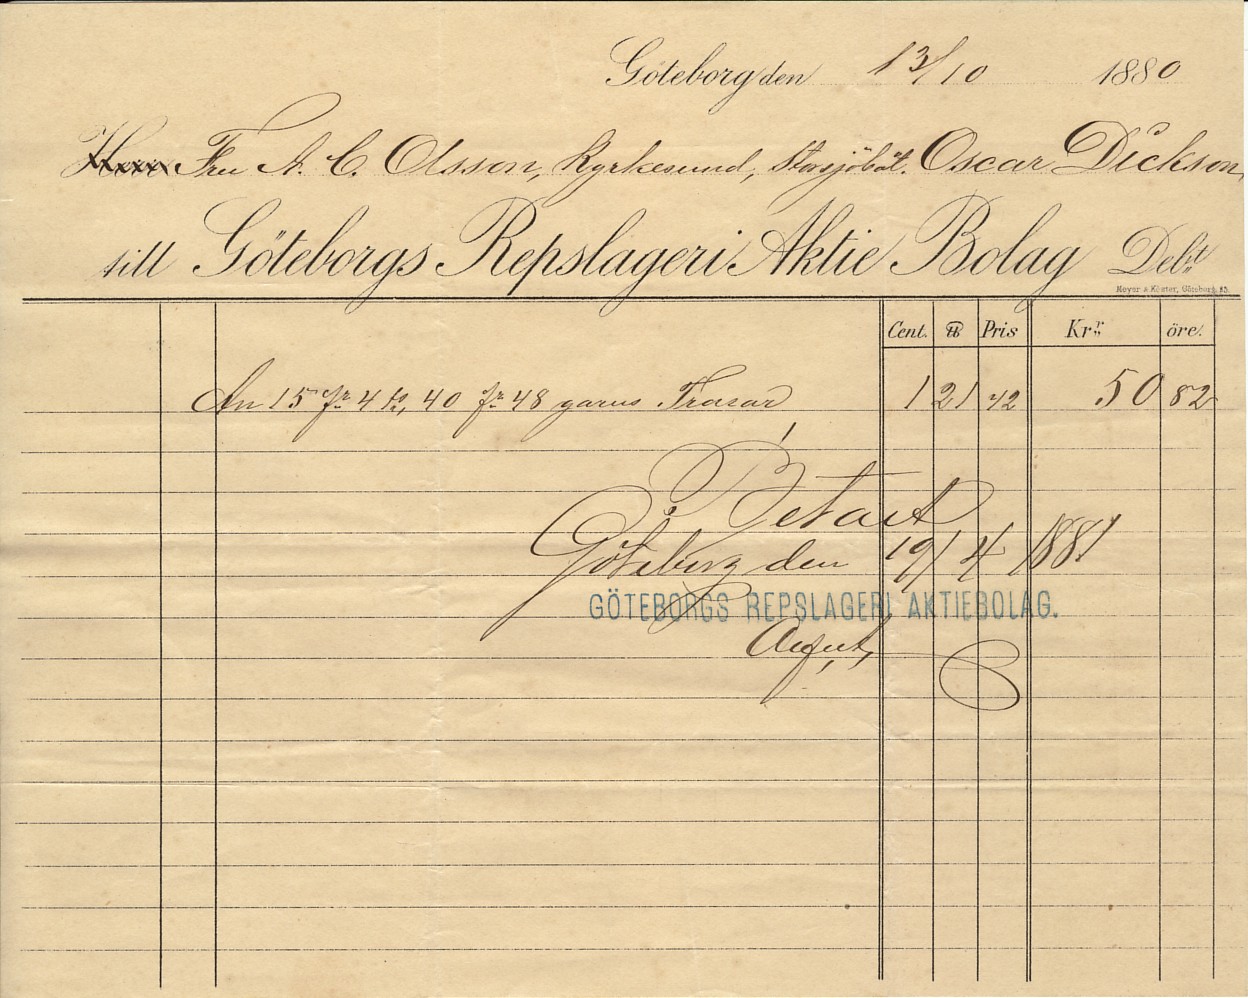 Göteborg den 13/10 1880
Herr Fru A. C. Olsson, Kyrkesund, Storsjöbåt. Oscar Dickson,
till Göteborgs Repslageri Aktie Bolag Debt
Meyer & Köster, Göteborg
Cent. ℔ Pris Krr öre.
An 15 fr 4 ℔, 40 fr 48 garns Trossar 1 21 42 50 82
Betalt
Göteborg den 19/4 1881
GÖTEBORGS REPSLAGERI AKTIEBOLAG.